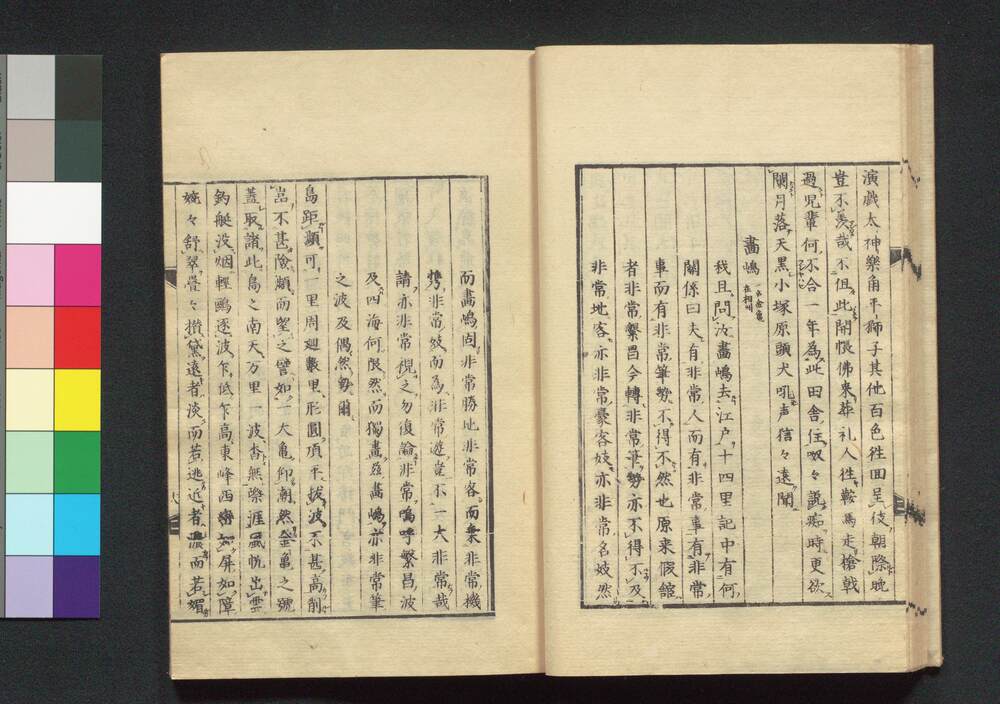 演戯太神樂角平獅子其他百色徃回呈伎朝際晩
豈不羨哉不但此開悵佛來葬礼人徃鞍馬走槍戟
過児輩何不合一年為此田舎任呶々説痴時更欲
闌月落天黒小塚原頭犬吼声狺々遠聞
畵嶋 一名金亀 在相州
我且問汝畵嶋去江戸十四里記中有何
關係曰夫有非常人而有非常事有非常
事而有非常筆勢不得不然也原来假舘
者非常繁昌今轉非常筆勢亦不得不及
非常地客亦非常豪客妓亦非常名妓然
而畵嶋固非常勝地非常客而乗非常機
携非常妓而為非常遊豈不一大非常哉
請亦非常視之勿復論非常嗚呼繁昌波
及四海何限然而獨畵茲畵嶋亦非常筆
之波及偶然勢爾
島距瀕可一里周廻数里形圓頂平抜波不甚高削
岊不甚險瀕而望之譬如一大亀仰朝然金亀之號
蓋取諸此島之南天万里一波杳無際涯風恍出雲
釣艇没烟軽鷗逐波乍低乍高東峰西巒如屏如障
嬈々舒翠畳々攅黛遠者淡而若逃近者濃而若媚